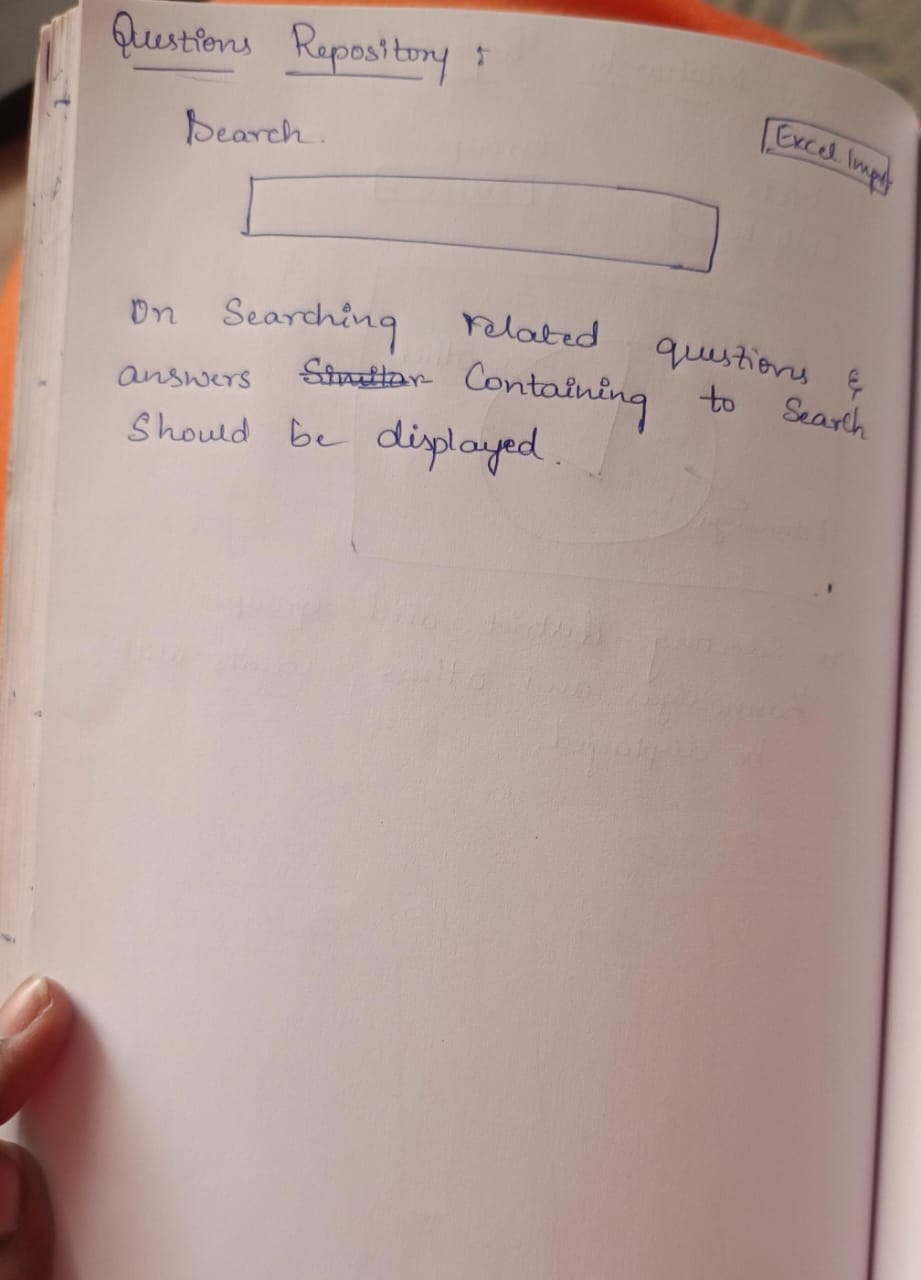 Questions Repository :
Search.
Excel Impt
On Searching related questions &
answers Similar Containing to Search
Should be displayed.